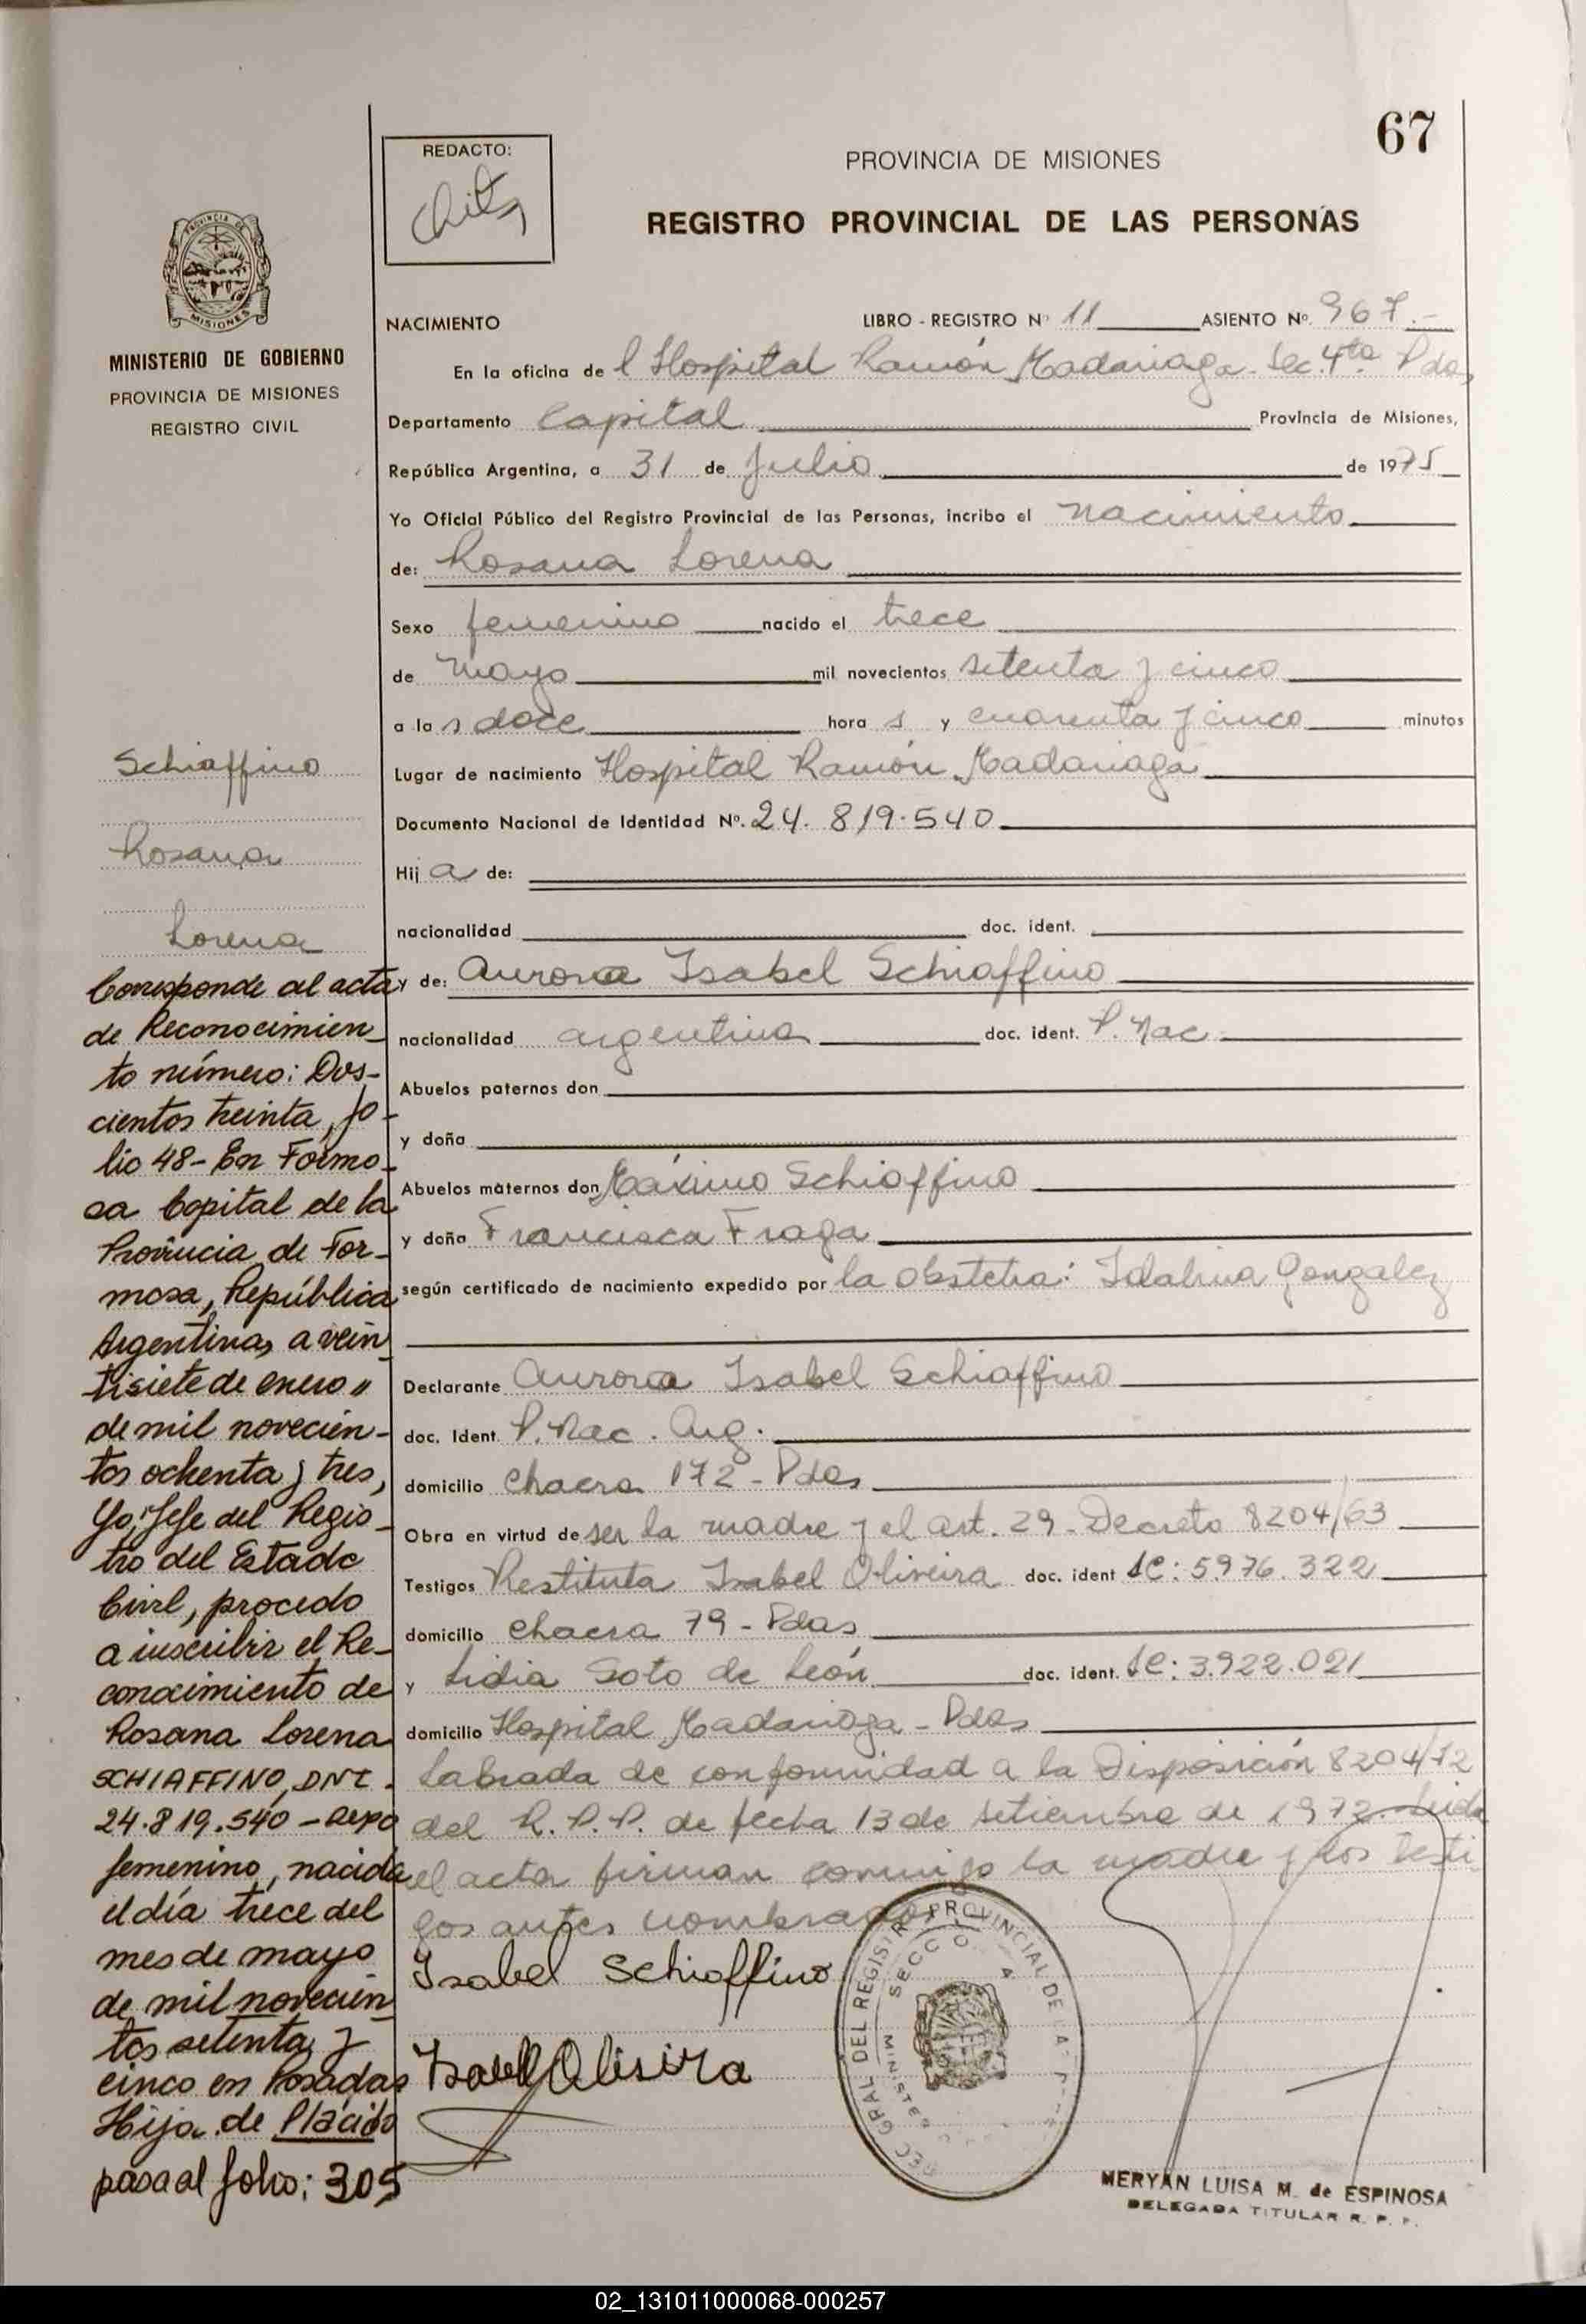 67
REDACTO:
PROVINCIA DE MISIONES
REGISTRO PROVINCIAL DE LAS PERSONAS
PROVINCIA DE
MISIONES
MINISTERIO DE GOBIERNO
PROVINCIA DE MISIONES
REGISTRO CIVIL
NACIMIENTO LIBRO - REGISTRO Nº 11 ASIENTO Nº 967.-
En la oficina de l Hospital Ramón Madariaga - Sec. 4ta. Pdas
Departamento Capital Provincia de Misiones,
República Argentina, a 31 de Julio de 1975
Yo Oficial Público del Registro Provincial de las Personas, incribo el nacimiento
de: Rosana Lorena
Sexo femenino nacido el trece
de Mayo mil novecientos setenta y cinco
a la s doce hora s y cuarenta y cinco minutos
Lugar de nacimiento Hospital Ramón Madariaga
Documento Nacional de Identidad Nº. 24.819.540
Hij a de:
nacionalidad doc. ident.
y de: Aurora Isabel Schiaffino
nacionalidad argentina doc. ident. P. Nac.
Abuelos paternos don
y doña
Abuelos maternos don Máximo Schiaffino
y doña Francisca Fraga
según certificado de nacimiento expedido por la obstetra: Idalina Gonzalez
Declarante Aurora Isabel Schiaffino
doc. Ident. P. Nac. Arg.
domicilio Chacra 172 - Pdas
Obra en virtud de ser la madre y el art. 29 - Decreto 8204/63
Testigos Restituta Isabel Oliveira doc. ident LC: 5.976.322
domicilio Chacra 79 - Pdas
y Lidia Soto de León doc. ident. LC: 3.922.021
domicilio Hospital Madariaga - Pdas
Labrada de conformidad a la Disposición 8204/72
del R.P.P. de fecha 13 de setiembre de 1972. Leida
el acta firman conmigo la madre y los testi
gos antes nombrados
Isabel Schiaffino
Isabel Oliveira
MERYAN LUISA M. de ESPINOSA
DELEGADA TITULAR R. P. P.
Schiaffino
Rosana
Lorena
Corresponde al acta
de Reconocimien
to número: Dos-
cientos treinta, fo-
lio 48- En Formo-
sa Capital de la
Provincia de For-
mosa, República
Argentina, a vein
tisiete de enero "
de mil novecien-
tos ochenta y tres,
Yo, Jefe del Regis-
tro del Estado
Civil, procedo
a inscribir el Re-
conocimiento de
Rosana Lorena
SCHIAFFINO, DNI.
24.819.540 - sexo
femenino, nacida
el día trece del
mes de mayo
de mil novecien
tos setenta y
cinco en Posadas
Hija de Plácido
pasa al folio: 305
02_131011000068-000257